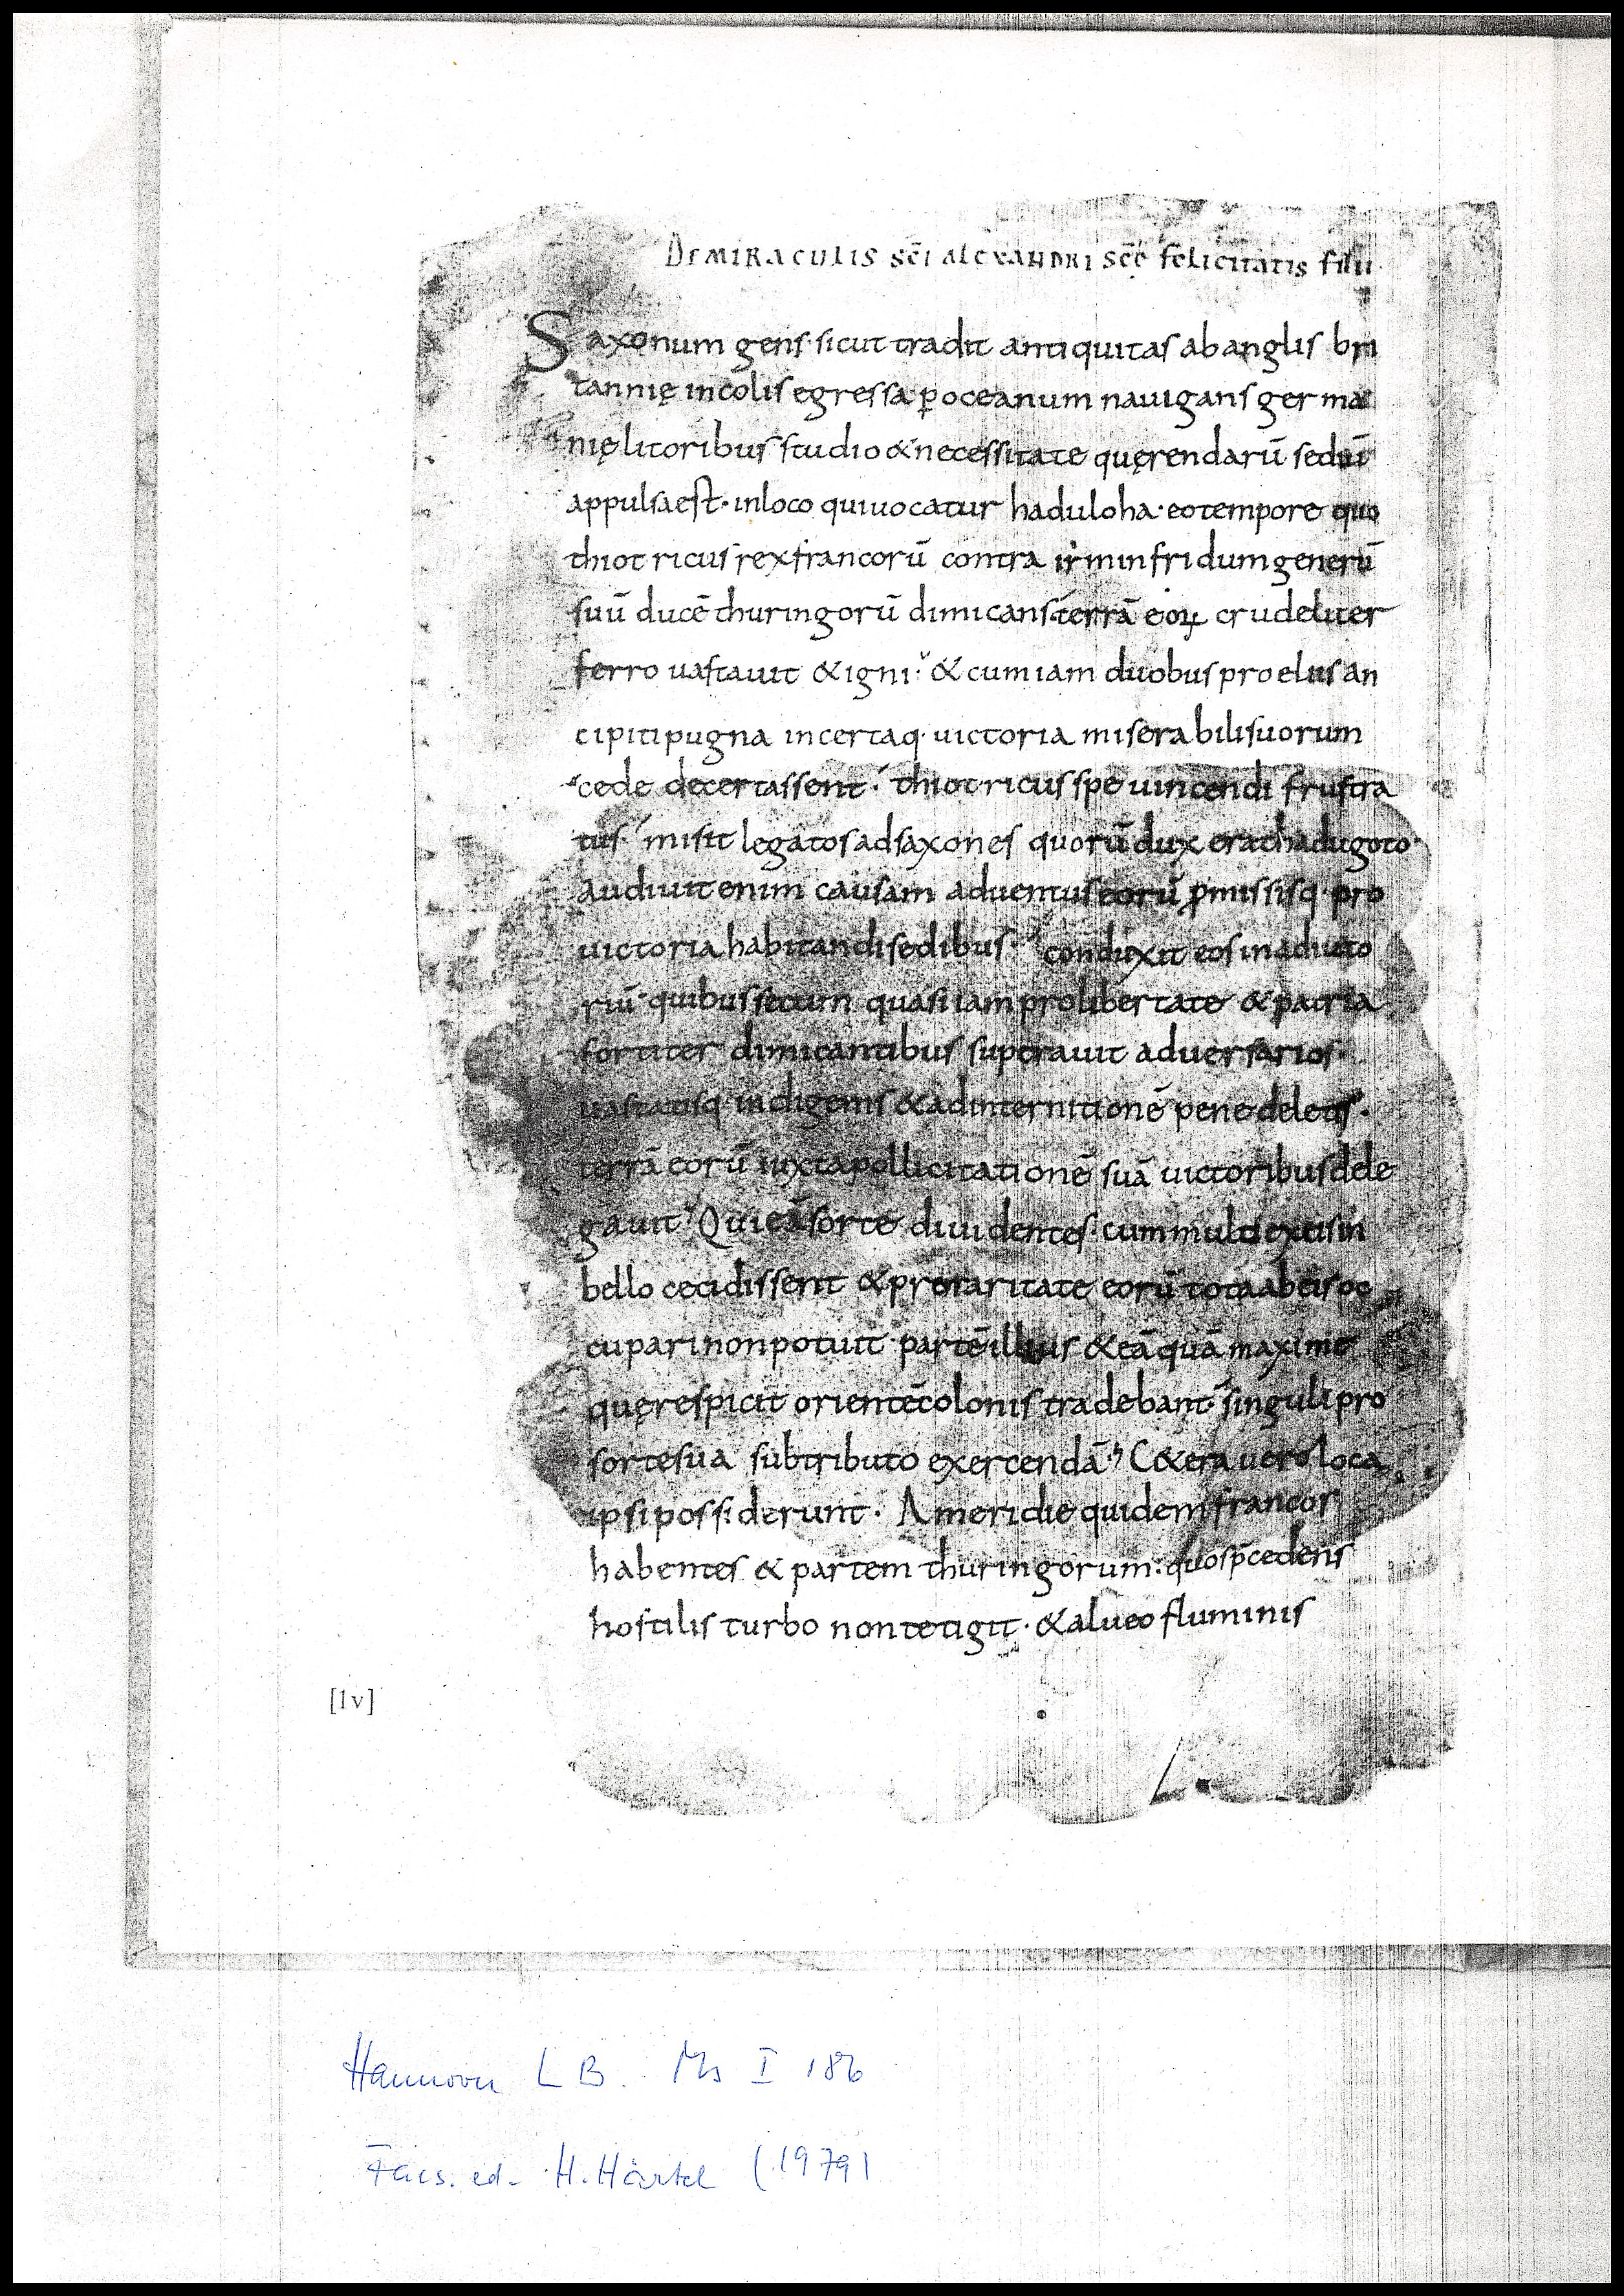 DE MIRACULIS SC̄I ALEXANDRI SC̄E FELICITATIS FILII
Saxonum gens sicut tradit antiquitas ab anglis bri
tannię incolis egressa ꝑ oceanum nauigans germa
nię litoribus studio & necessitate quęrendarū sediū
appulsa est· in loco qui uocatur haduloha· eo tempore quo
thiotricus rex francorū contra irminfridum generū
suū ducē thuringorū dimicans· terrā eoꝝ crudeliter
ferro uastauit & igni· & cum iam duobus proeliis an
cipiti pugna incertaq· uictoria miserabili suorum
cede decertassent· thiotricus spe uincendi frustra
tus· misit legatos ad saxones quorū dux erat hadugoto·
Audiuit enim causam aduentus eorū ꝓmissisq· pro
uictoria habitandi sedibus· conduxit eos in adiuto
riū· quibus secum quasi iam pro libertate & patria
fortiter dimicantibus superauit aduersarios·
uastatisq· indigenis & ad internitionē pene deletis·
terrā eorū iuxta pollicitationē suā uictoribus dele
gauit· Qui eā sorte diuidentes· cum multi ex eis in
bello cecidissent & pro raritate eorū tota ab eis oc
cupari non potuit· partē illius & eā quā maxime
quę respicit orientē colonis tradebant· singuli pro
sorte sua sub tributo exercendā· C&era uero loca
ipsi possiderunt· A meridie quidem francos
habentes & partem thuringorum: quos p̄cedens
hostilis turbo non tetigit· & alueo fluminis
[1v]
Hannover LB. Ms I 186
Facs. ed. H. Härtel (1979)